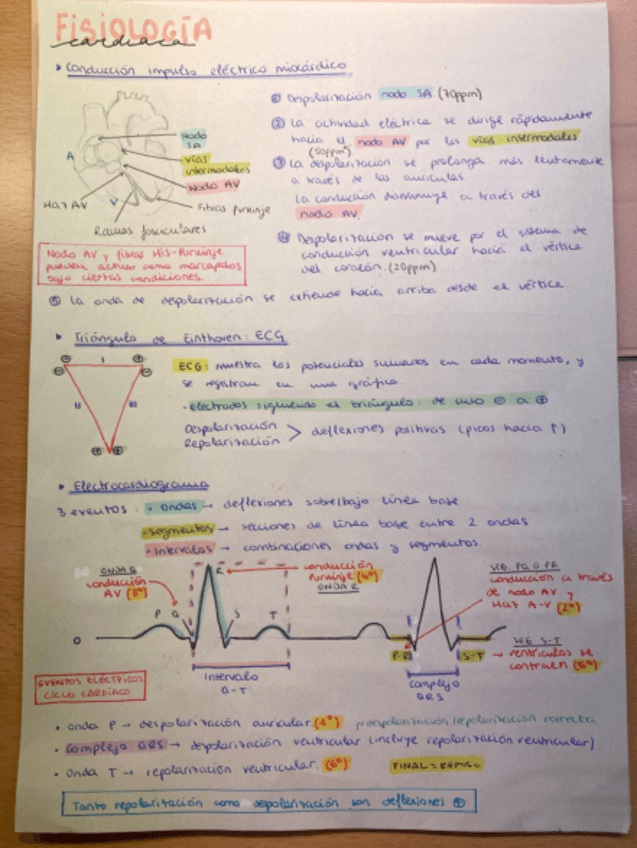 FISIOLOGÍA
cardiaca
▸ Conducción impulso eléctrico miocárdico
① Despolarización nodo SA. (70ppm)
② La actividad eléctrica se dirige rápidamente
hacia el nodo AV por las vías intermodales
(50ppm)
③ La despolarización se prolonga más lentamente
a través de las aurículas.
La conducción disminuye a través del
nodo AV.
④ Despolarización se mueve por el sistema de
conducción ventricular hacia el vértice
del corazón. (20ppm)
Nodo
SA
A
vías
intermodales
Nodo AV
Haz AV
V
Fibras Purkinje
Ramas fasciculares
Nodo AV y fibras His-Purkinje
pueden actuar como marcapasos
bajo ciertas condiciones.
⑤ La onda de despolarización se extiende hacia arriba desde el vértice.
▸ Triángulo de Einthoven: ECG
I
II
III
ECG: muestra los potenciales sumados en cada momento, y
se registran en una gráfica.
- electrodos siguiendo el triángulo: de uno ⊖ a ⊕
Despolarización
Repolarización > deflexiones positivas (picos hacia ↑)
▸ Electrocardiograma
3 eventos: • Ondas → deflexiones sobre/bajo línea base
• Segmentos → secciones de línea base entre 2 ondas
• Intervalos → combinaciones ondas y segmentos.
ONDA Q
conducción
AV (3º)
conducción
Purkinje (4º)
ONDA R
SEG. PQ O PR
conducción a través
de nodo AV y
Haz A-V (2º)
P Q R S T
0
P-R
S-T
SEG. S-T
→ ventrículos se
contraen (5º)
EVENTOS ELÉCTRICOS
CICLO CARDÍACO
Intervalo
Q-T
Complejo
QRS
• onda P → despolarización auricular. (1º)
• Complejo QRS → despolarización ventricular (incluye repolarización ventricular).
• Onda T → repolarización ventricular. (6º) FINAL = REPOSO
Tanto repolarización como despolarización son deflexiones ⊕